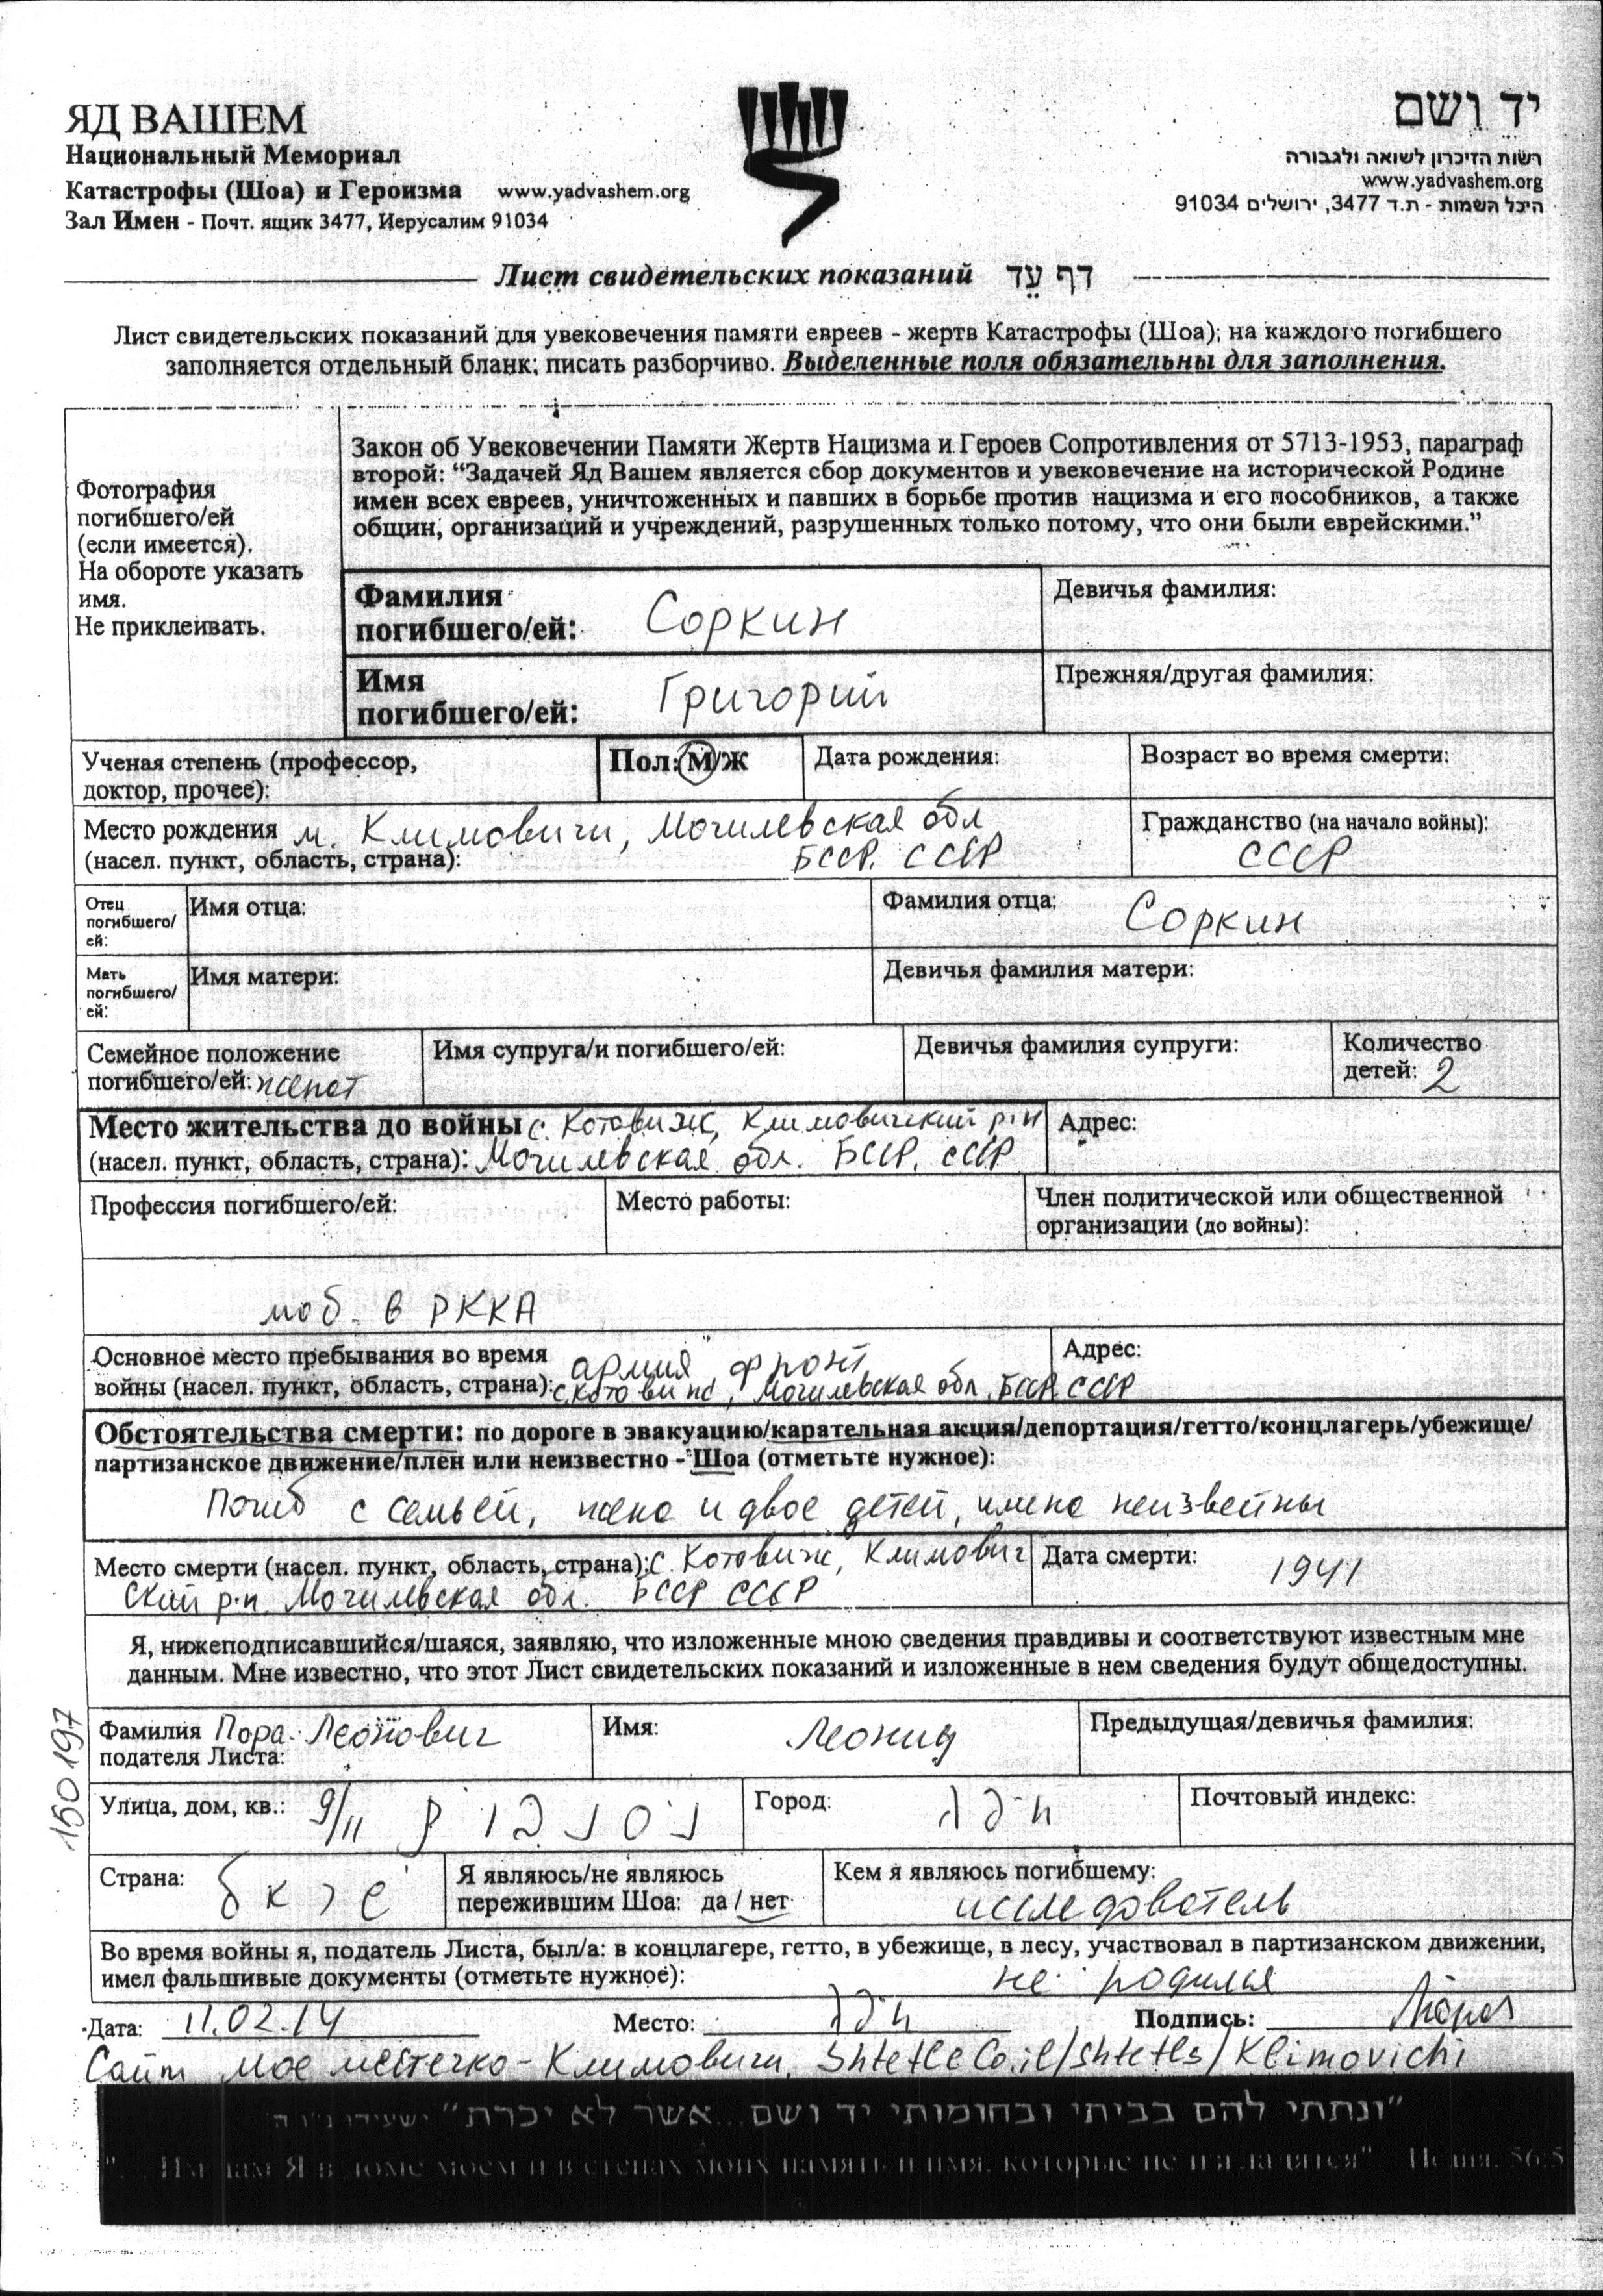 ЯД ВАШЕМ
Национальный Мемориал
Катастрофы (Шоа) и Героизма www.yadvashem.org
Зал Имен - Почт. ящик 3477, Иерусалим 91034
יד ושם
רשות הזיכרון לשואה ולגבורה
www.yadvashem.org
היכל השמות - ת.ד 3477, ירושלים 91034
Лист свидетельских показаний דף עֵד
Лист свидетельских показаний для увековечения памяти евреев - жертв Катастрофы (Шоа); на каждого погибшего
заполняется отдельный бланк; писать разборчиво. Выделенные поля обязательны для заполнения.
Фотография
погибшего/ей
(если имеется).
На обороте указать
имя.
Не приклеивать.
Закон об Увековечении Памяти Жертв Нацизма и Героев Сопротивления от 5713-1953, параграф
второй: “Задачей Яд Вашем является сбор документов и увековечение на исторической Родине
имен всех евреев, уничтоженных и павших в борьбе против нацизма и его пособников, а также
общин, организаций и учреждений, разрушенных только потому, что они были еврейскими.”
Фамилия
погибшего/ей: Соркин
Девичья фамилия:
Имя
погибшего/ей: Григорий
Прежняя/другая фамилия:
Ученая степень (профессор,
доктор, прочее):
Пол: М/Ж
Дата рождения:
Возраст во время смерти:
Место рождения м. Климовичи, Могилевская обл
(насел. пункт, область, страна): БССР. СССР
Гражданство (на начало войны):
СССР
Отец
погибшего/
ей:
Имя отца:
Фамилия отца: Соркин
Мать
погибшего/
ей:
Имя матери:
Девичья фамилия матери:
Семейное положение
погибшего/ей: женат
Имя супруга/и погибшего/ей:
Девичья фамилия супруги:
Количество
детей: 2
Место жительства до войны с. Котовиж, Климовичский р-н
(насел. пункт, область, страна): Могилевская обл. БССР, СССР
Адрес:
Профессия погибшего/ей:
Место работы:
Член политической или общественной
организации (до войны):
моб. в РККА
Основное место пребывания во время армия фронт
войны (насел. пункт, область, страна): с. Котовиж, Могилевская обл, БССР СССР
Адрес:
Обстоятельства смерти: по дороге в эвакуацию/карательная акция/депортация/гетто/концлагерь/убежище/
партизанское движение/плен или неизвестно - Шоа (отметьте нужное):
Погиб с семьей, жена и двое детей, имена неизвестны
Место смерти (насел. пункт, область, страна): с. Котовиж, Климович
ский р-н. Могилевская обл. БССР СССР
Дата смерти: 1941
Я, нижеподписавшийся/шаяся, заявляю, что изложенные мною сведения правдивы и соответствуют известным мне
данным. Мне известно, что этот Лист свидетельских показаний и изложенные в нем сведения будут общедоступны.
150197
Фамилия Пора-Леонович
податела Листа:
Имя: Леонид
Предыдущая/девичья фамилия:
Улица, дом, кв.: 9/11
Город:
Почтовый индекс:
Страна:
Я являюсь/не являюсь
пережившим Шоа: да / нет
Кем я являюсь погибшему:
исследователь
Во время войны я, податель Листа, был/а: в концлагере, гетто, в убежище, в лесу, участвовал в партизанском движении,
имел фальшивые документы (отметьте нужное): не родился
Дата: 11.02.14 Место: Подпись:
Сайт мое местечко - Климовичи, ShtetleCo.il/shtetls/Klimovichi
"ונתתי להם בביתי ובחומותי יד ושם...אשר לא יכרת" ישעיהו נ"ו ה'
"... Им дам Я в доме моем и в стенах моих память и имя, которые не изгладятся" Исайя, 56:5